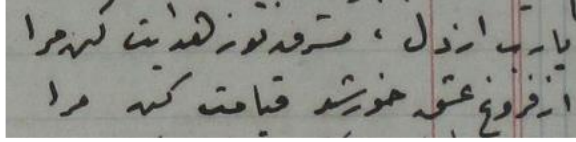 یارب از دل ، مشرق نور هدایت کن مرا
از فروغ عشق خورشید قیامت کن مرا